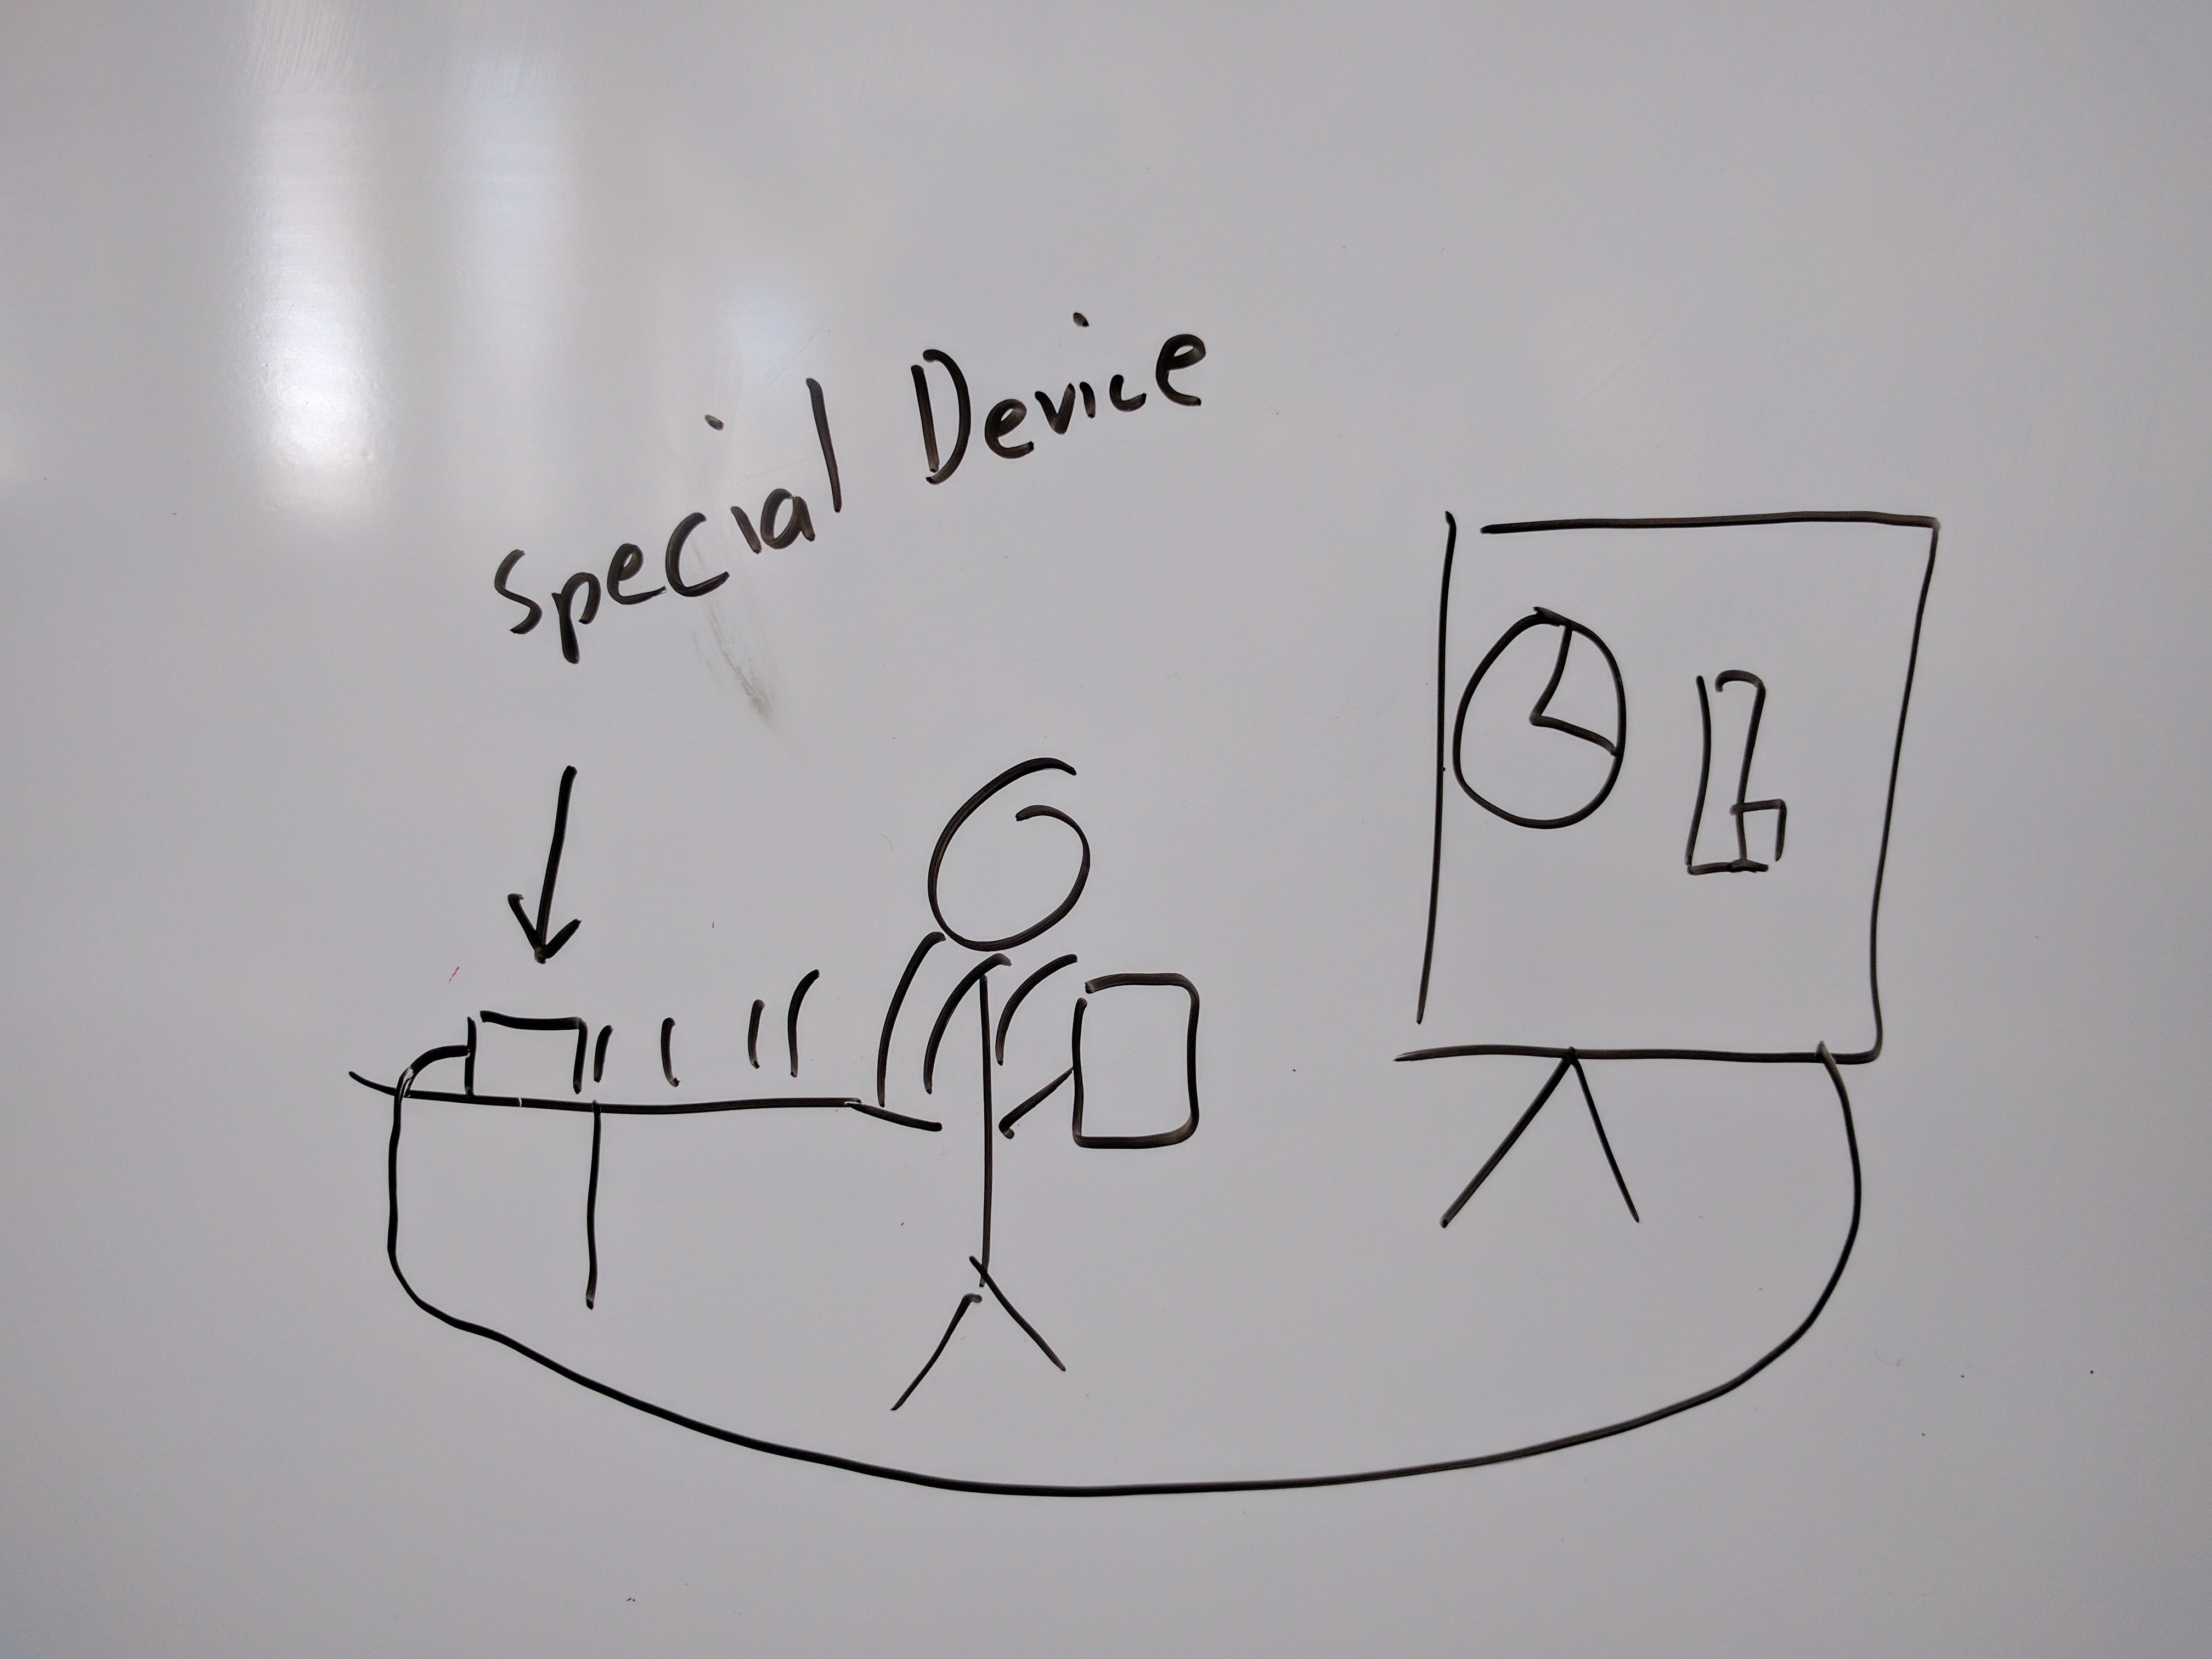 Special Device